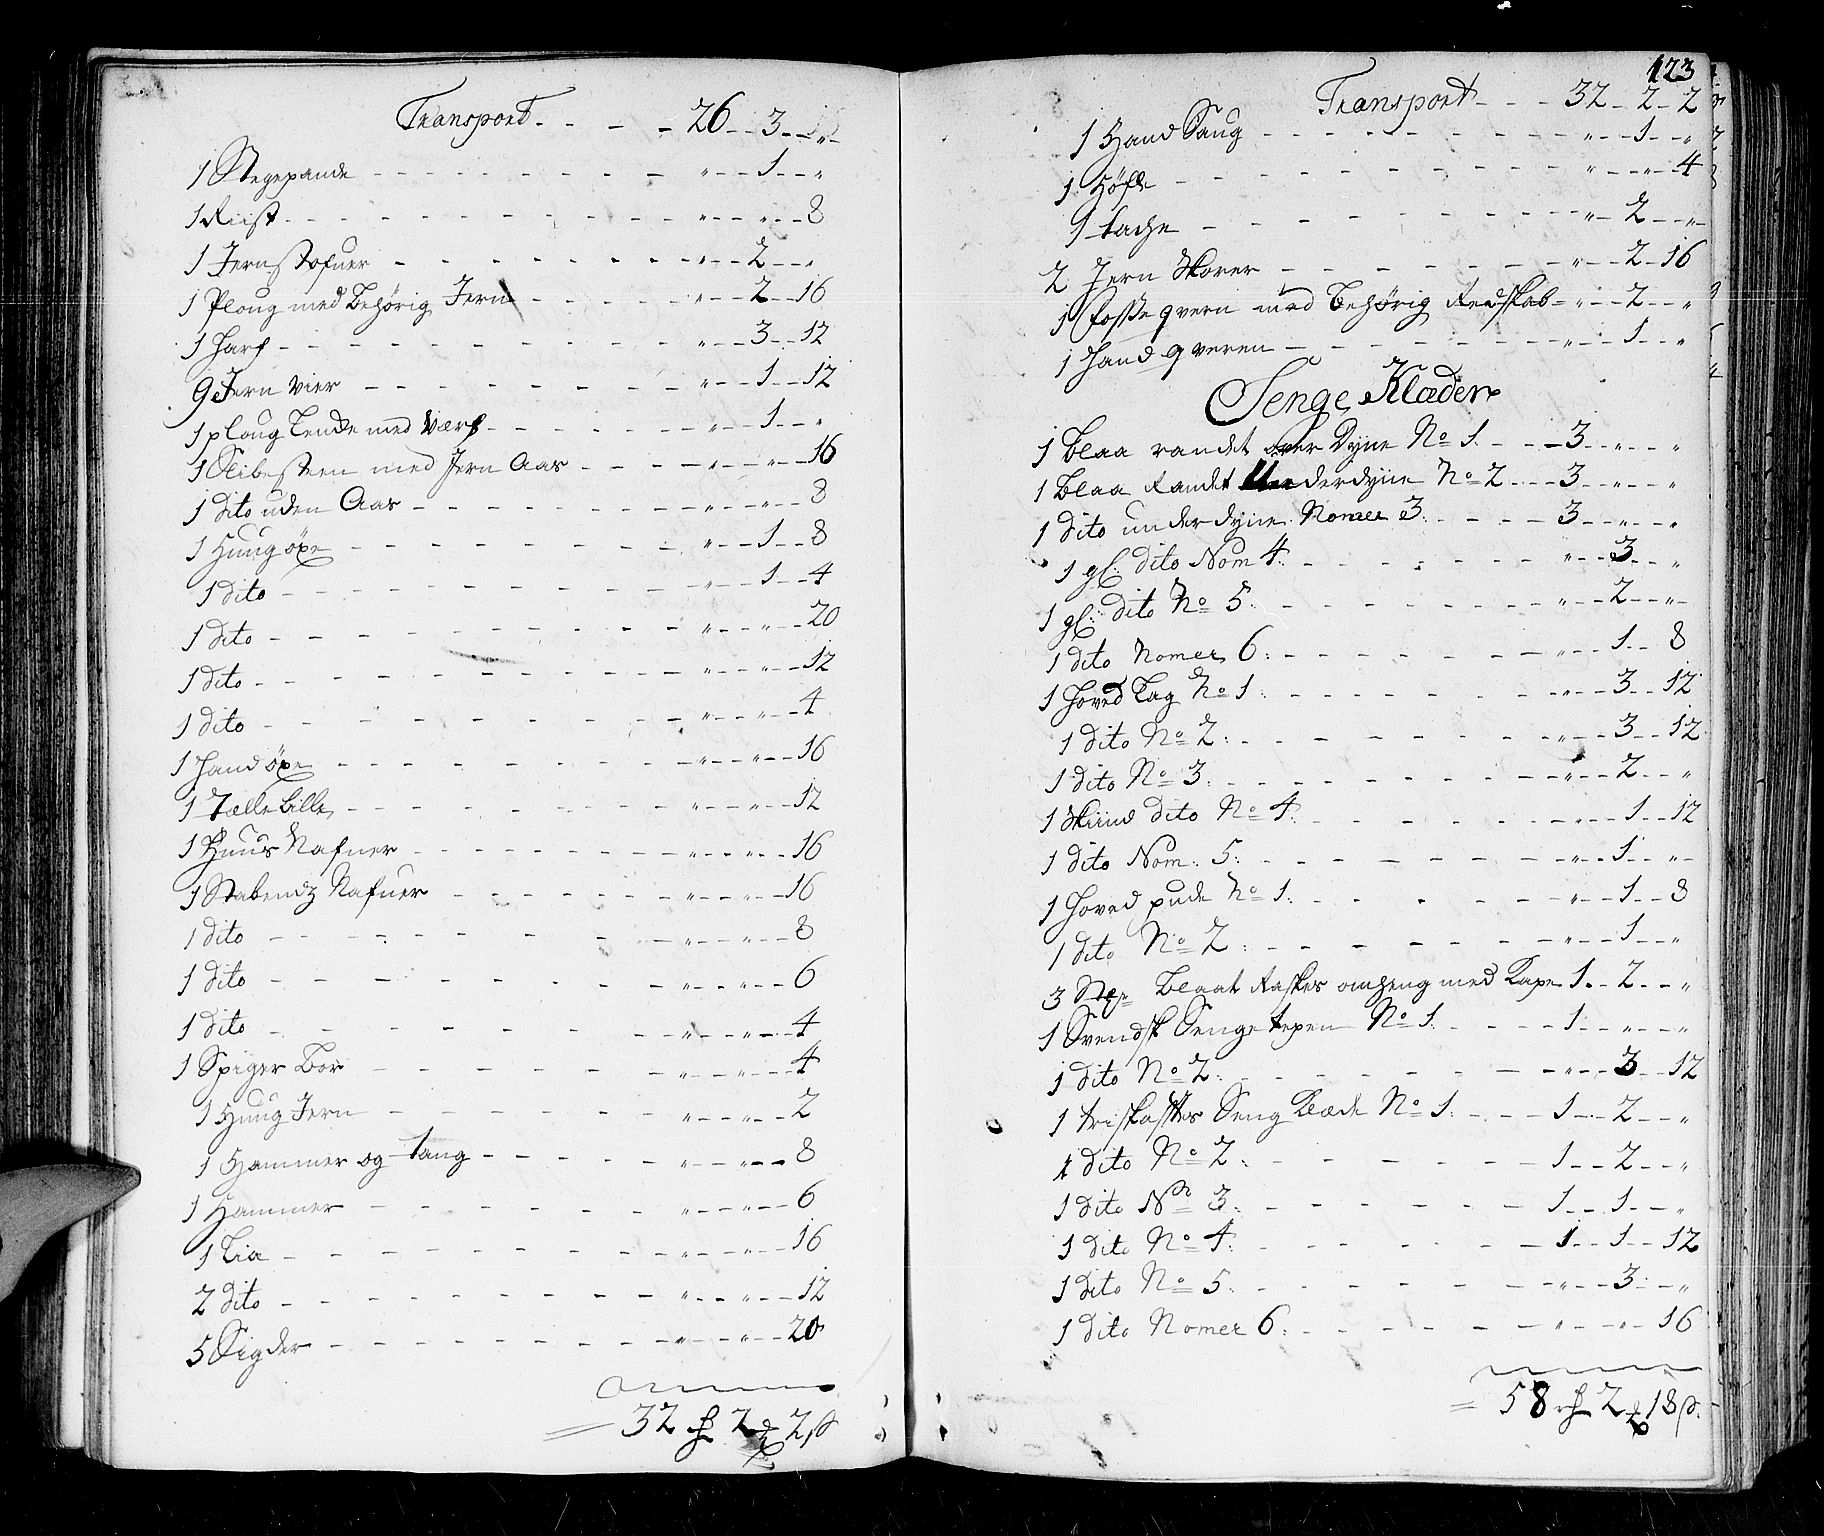 Transport - - - - 26 - 3 - 
1 Stegepande - - - " - 1 - "
1 Riist - - - " - " - 8
1 Jernstofuer - - - " - 2 - "
1 Ploug med behørig Jern - - - " - 2 - 16
1 Harf - - - " - 3 - 12
9 Jern vier - - - " - 1 - 12
1 ploug Lende med værf - - - " - 1 - "
1 Slibesteen med Jern Aas - - - " - " - 16
1 dito uden Aas - - - " - " - 8
1 Huug öxe - - - " - 1 - 8
1 dito - - - " - 1 - 4
1 dito - - - " - " - 20
1 dito - - - " - " - 12
1 dito - - - " - " - 4
1 Hand öxe - - - " - " - 16
1 Tælle bille - - - " - " - 12
1 Huus Nafuer - - - " - " - 16
1 Stabendz Nafuer - - - " - " - 16
1 dito - - - " - " - 8
1 dito - - - " - " - 6
1 dito - - - " - " - 4
1 Spiger Bor - - - " - " - 4
1 Huug Jern - - - " - " - 2
1 Hammer og tang - - - " - " - 8
1 Hammer - - - " - " - 6
1 Lia - - - " - " - 16
2 dito - - - " - " - 12
5 Sigder - - - " - " - 20
= 32 rd 2 2 s
123
Transport - - - 32 - 2 - 2
1 Hand Saug - - - " - 1 - "
1 Höfle - - - " - " - 4
1 tache - - - " - 2 - "
2 Jern Skorer - - - " - 2 - 16
1 Fosse qvern med behørig Redskab - " - 2 - "
1 Hand qveren - - - " - 1 - "
Senge Klæder
1 blaa randet over Dyne No 1. - - - 3 - " - "
1 blaa Randet Underdyne No 2 - - - 3 - " - "
1 dito underdyne Nomer 3: - - - 3 - " - "
1 gl: dito Nom 4: - - - " - 3 - "
1 gl: dito No 5: - - - " - 2 - "
1 dito Nomer 6: - - - " - 1 - 8
1 Hoved Lag No 1: - - - " - 3 - 12
1 dito No 2: - - - " - 3 - 12
1 dito No 3: - - - " - 2 - "
1 Skiind dito No 4: - - - " - 1 - 12
1 dito Nom: 5: - - - " - 1 - "
1 Hoved pude No 1: - - - " - 1 - 8
1 dito No 2: - - - " - 1 - "
3 blaat Raskes omheng med Kape 1 - 2 - "
1 Svendsk Senge tepen No 1: - - - 1 - " - "
1 dito No 2: - - - " - 3 - 12
1 triskaftes Seng Klæde No 1: - - - 1 - 2 - "
1 dito No 2: - - - 1 - 2 - "
1 dito No 3: - - - 1 - 1 - "
1 dito No 4: - - - 1 - 1 - 12
1 dito No 5: - - - " - 3 - "
1 dito Nomer 6: - - - " - " - 16
= 58 rd 2 18 s.